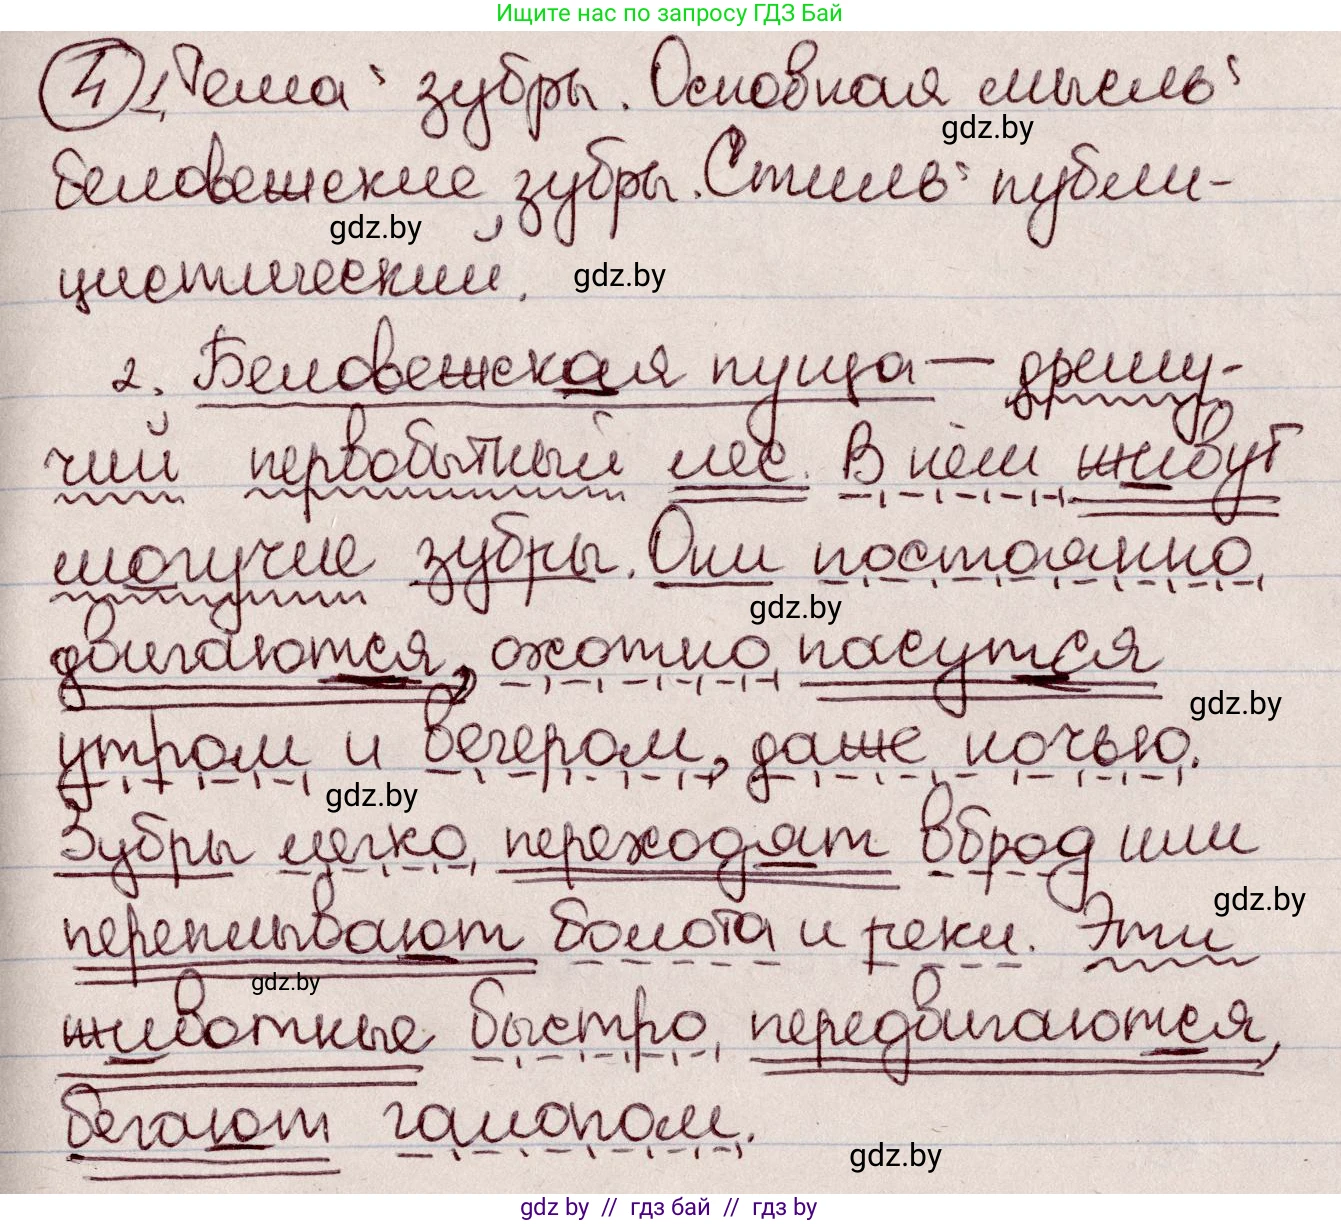 Ищите нас по запросу ГДЗ Бай
4 1. Тема: зубры. Основная мысль:
gdz.by
беловешские зубры. Стиль: публи-
gdz.by
цистический.
gdz.by
2. Беловешская пуща — дрему-
чий первобытный лес. В нём живут
могучие зубры. Они постоянно
gdz.by
двигаются, охотно пасутся
gdz.by
утром и вечером, даже ночью.
gdz.by
Зубры легко переходят вброд или
gdz.by
переплывают болота и реки. Эти
gdz.by
животные быстро передвигаются,
бегают галопом.
gdz.by
gdz by // гдз бай // gdz by